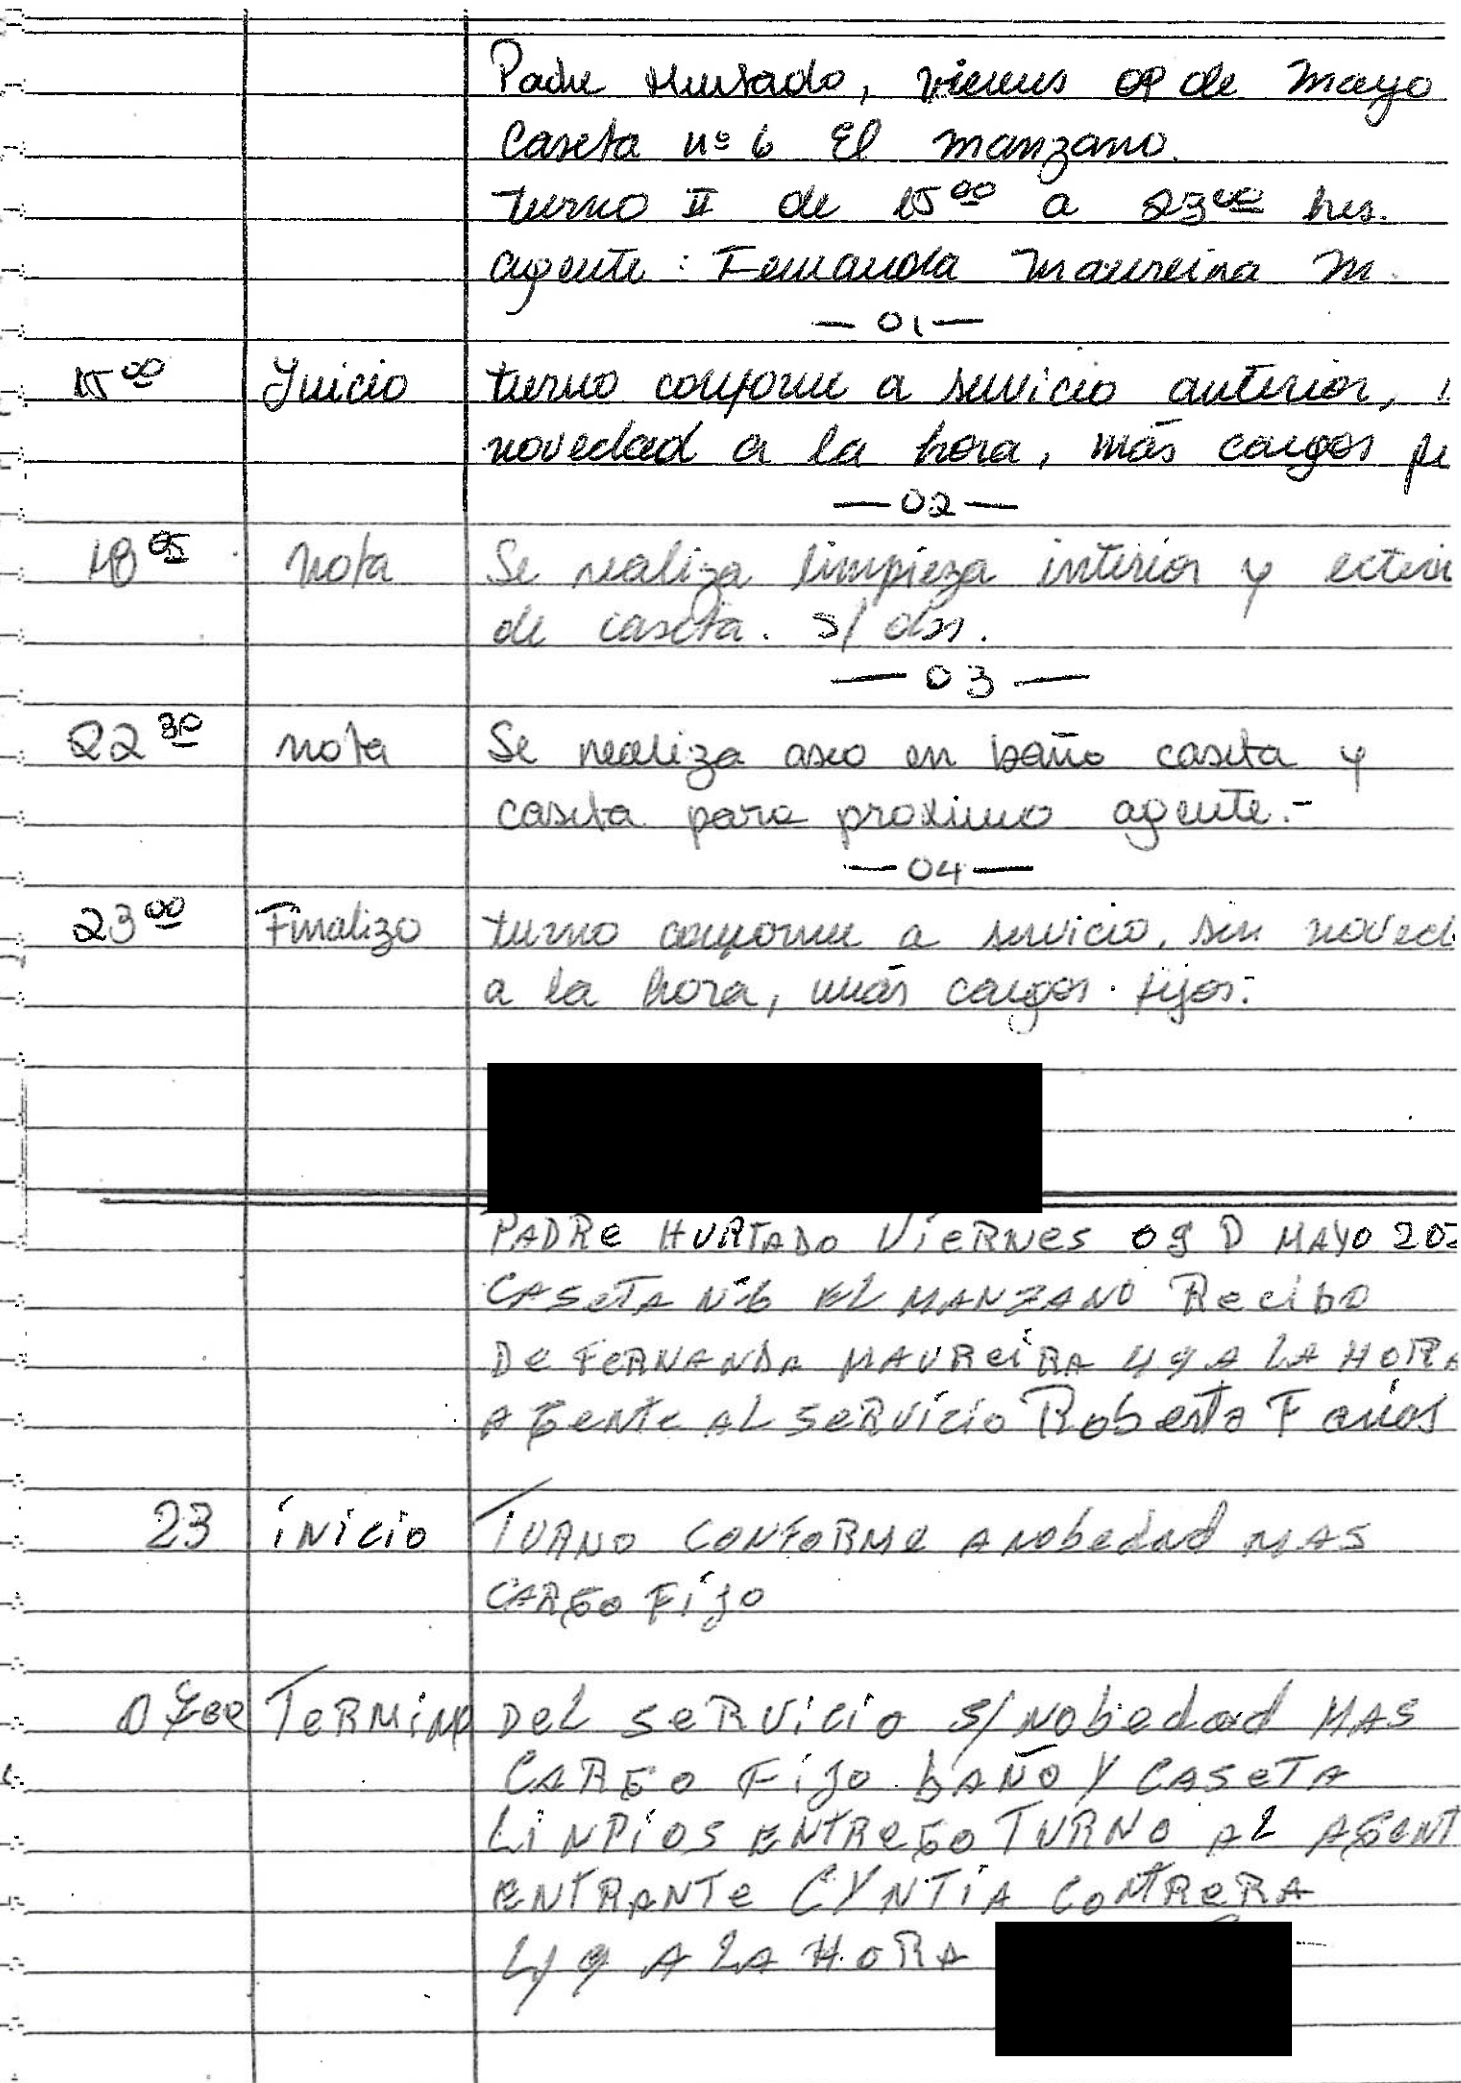 Padre Hurtado, viernes 09 de Mayo
Caseta nº 6 El manzano.
turno II de 15 00 a 23 00 hrs.
agente: Fernanda Maureira M.
— 01 —
15 00 Inicio turno conforme a servicio anterior,
novedad a la hora, más cargos
— 02 —
18 05 nota Se realiza limpieza interior y exteri
de caseta. s/ obs.
— 03 —
22 30 nota Se realiza aseo en baño caseta y
caseta para proximo agente.-
— 04 —
23 00 Finalizo turno conforme a servicio, sin noved
a la hora, más cargos fijos.
PADRE HURTADO ViERNES 09 D MAYO 202
CASETA Nº6 EL MANZANO Recibo
De FERNANDA MAUREiRA 4 y 9 A LA HORA
AGENTE AL SERVICIO Roberto Farias
23 iNicio TURNO CONFORMe A Nobedad MAS
CARGO Fijo
0700 TeRMiNO Del SeRVicio S/Nobedad MAS
CARGO Fijo bAÑO Y CASeTA
LiNPiOS ENTREGO TURNO AL AGENT
ENTRANTe CYNTiA CONTReRA
A LA HORA